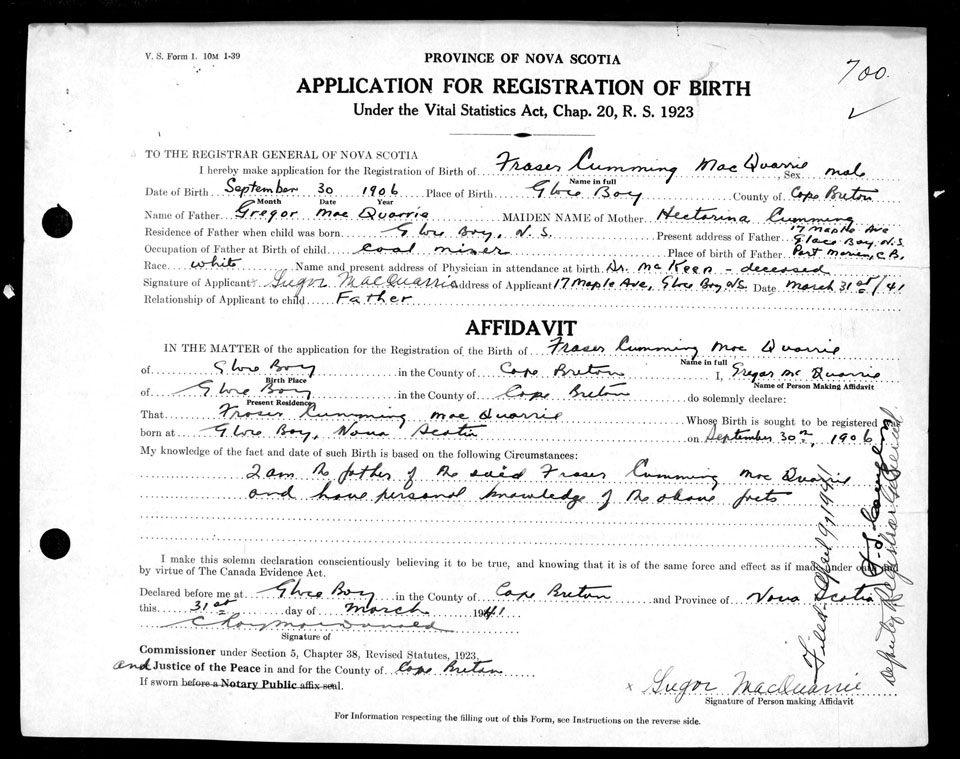 V. S. Form 1. 10M 1-39
PROVINCE OF NOVA SCOTIA
700.
APPLICATION FOR REGISTRATION OF BIRTH
Under the Vital Statistics Act, Chap. 20, R. S. 1923
TO THE REGISTRAR GENERAL OF NOVA SCOTIA
I hereby make application for the Registration of Birth of Fraser Cumming MacQuarrie, Sex male
Name in full
Date of Birth September 30 1906 Place of Birth Glace Bay County of Cape Breton
Month Date Year
Name of Father Gregor MacQuarrie MAIDEN NAME of Mother Hectorina Cumming
Residence of Father when child was born Glace Bay, N.S. Present address of Father 17 Maple Ave Glace Bay, N.S.
Occupation of Father at Birth of child coal miner Place of birth of Father Port Morien, C.B.
Race white Name and present address of Physician in attendance at birth Dr. McKeen - deceased
Signature of Applicant x Gregor MacQuarrie Address of Applicant 17 Maple Ave, Glace Bay N.S. Date March 31st/41
Relationship of Applicant to child Father
AFFIDAVIT
IN THE MATTER of the application for the Registration of the Birth of Fraser Cumming MacQuarrie
Name in full
of Glace Bay in the County of Cape Breton I, Gregor McQuarrie
Birth Place Name of Person Making Affidavit
of Glace Bay in the County of Cape Breton do solemnly declare:
Present Residence
That Fraser Cumming MacQuarrie Whose Birth is sought to be registered
born at Glace Bay, Nova Scotia on September 30th, 1906
My knowledge of the fact and date of such Birth is based on the following Circumstances:
I am the father of the said Fraser Cumming MacQuarrie
and have personal knowledge of the above facts
I make this solemn declaration conscientiously believing it to be true, and knowing that it is of the same force and effect as if made under oath and
by virtue of The Canada Evidence Act.
Declared before me at Glace Bay in the County of Cape Breton and Province of Nova Scotia
this 31st day of March 1941
C Roy MacDonald
Signature of
Commissioner under Section 5, Chapter 38, Revised Statutes, 1923,
and Justice of the Peace in and for the County of Cape Breton
If sworn before a Notary Public affix seal.
x Gregor MacQuarrie
Signature of Person making Affidavit
For Information respecting the filling out of this Form, see Instructions on the reverse side.
Filed April 9, 1941
Deputy Registrar General